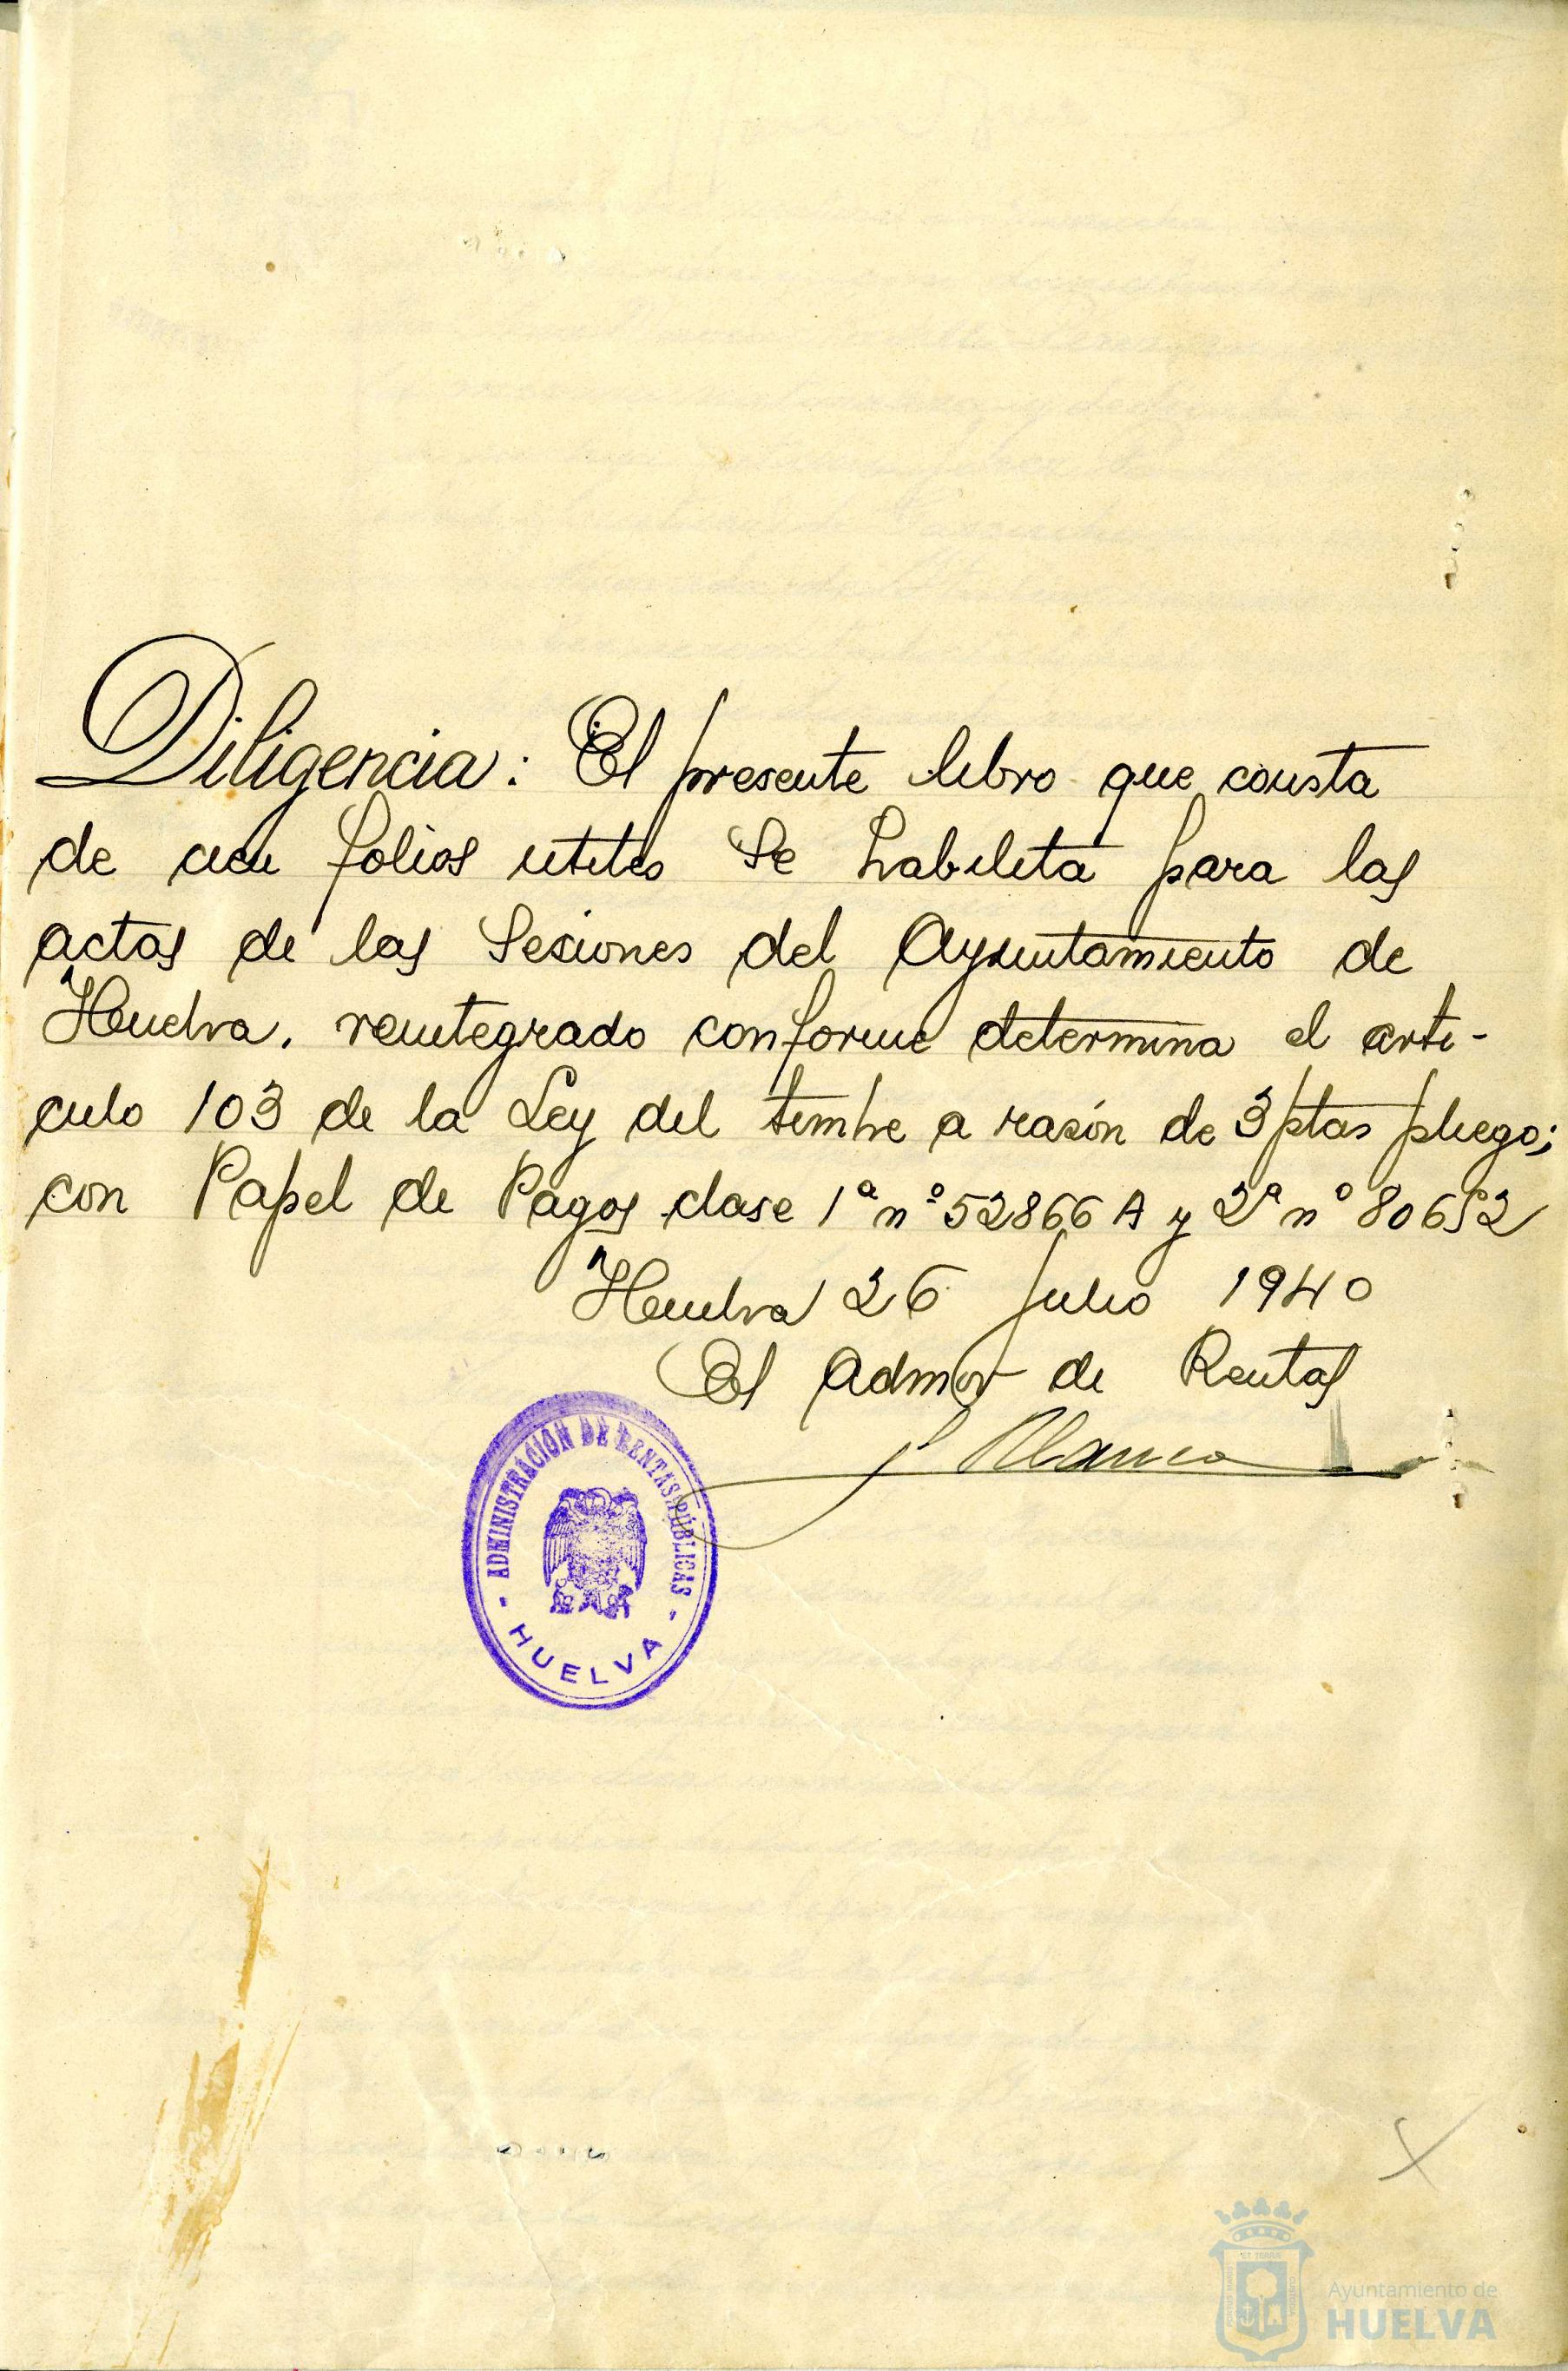 Diligencia: El presente libro que consta
de cien folios utiles se habilita para las
actas de las Sesiones del Ayuntamiento de
Huelva, reintegrado conforme determina el arti-
culo 103 de la Ley del timbre a razón de 3 ptas pliego;
con Papel de Pagos clase 1ª nº 52866 A y 2ª nº 80652
Huelva 26 Julio 1940
El Admor de Rentas
Blanco
- ADMINISTRACIÓN DE RENTAS PÚBLICAS -
HUELVA
Ayuntamiento de
HUELVA